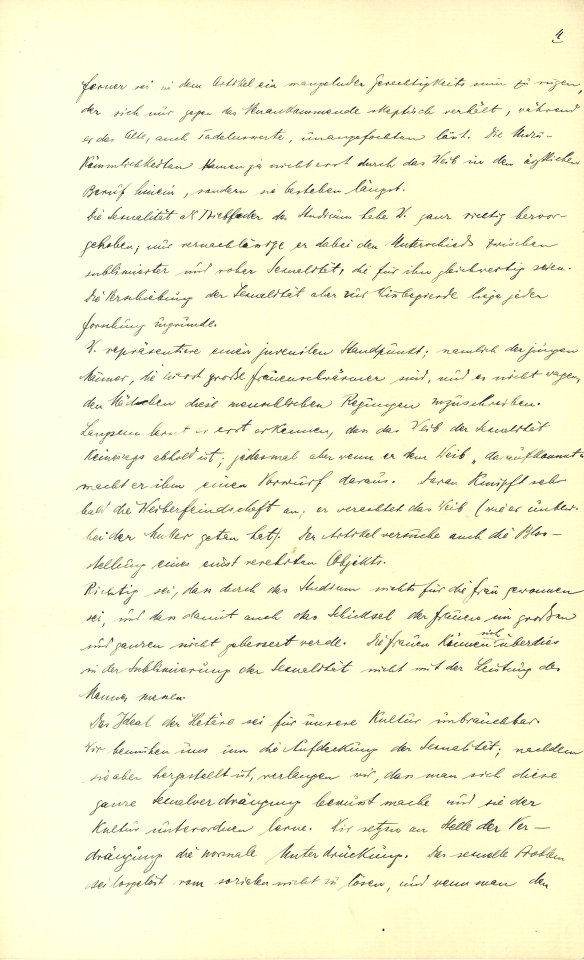 4
ferner sei in dem Artikel ein mangelnder Gerechtigkeitssinn zu rügen,
der sich nur gegen das Heraukommende skeptisch verhält, während
er das Alte, auch Tadelnswerte, unangefochten lässt. Die Unzu-
kömmlichkeiten kamen ja nicht erst durch das Weib in den ärztlichen
Beruf hinein, sondern sie bestehen längst.
Die Sexualität als Triebfeder des Studiums habe W. ganz richtig hervor-
gehoben; nur vernachlässige er dabei den Unterschied zwischen
sublimierter und roher Sexualität, die für ihn gleichwertig seien.
Die Verschiebung der Sexualität aber zur Wissbegierde liege jeder
Forschung zugrunde.
W. repräsentiere einen juvenilen Standpunkt; nemlich der jungen
Männer, die zuerst große Frauenschwärmer sind, und es nicht wagen,
den Mädchen diese menschlichen Regungen zuzuschreiben.
Langsam lernt er erst erkennen, dass das Weib der Sexualität
keineswegs abhold ist; jedesmal aber wenn er dem Weib „daraufkommt"
macht er ihm einen Vorwurf daraus. Daran knüpft sich
bald die Weiberfeindschaft an: er verachtet das Weib (wie er zuvor
bei der Mutter getan hat). Der Artikel versuche auch die Blos-
stellung eines einst verehrten Objekts.
Richtig sei, dass durch das Studium nichts für die Frau gewonnen
sei, und dass damit auch das Schicksal der Frauen im großen
und ganzen nicht gebessert werde. Die Frauen können sich überdies
in der Sublimierung der Sexualität nicht mit der Leistung des
Mannes messen.
Das Ideal der Hetäre sei für unsere Kultur unbrauchbar.
Wir bemühen uns um die Aufdeckung der Sexualität; nachdem
sie aber hergestellt ist, verlangen wir, dass man sich diese
ganze Sexualverdrängung bewusst mache und sie der
Kultur unterordnen lerne. Wir setzen an Stelle der Ver-
drängung die normale Unterdrückung. Das sexuelle Problem
sei losgelöst vom sozialen nicht zu lösen, und wenn man den